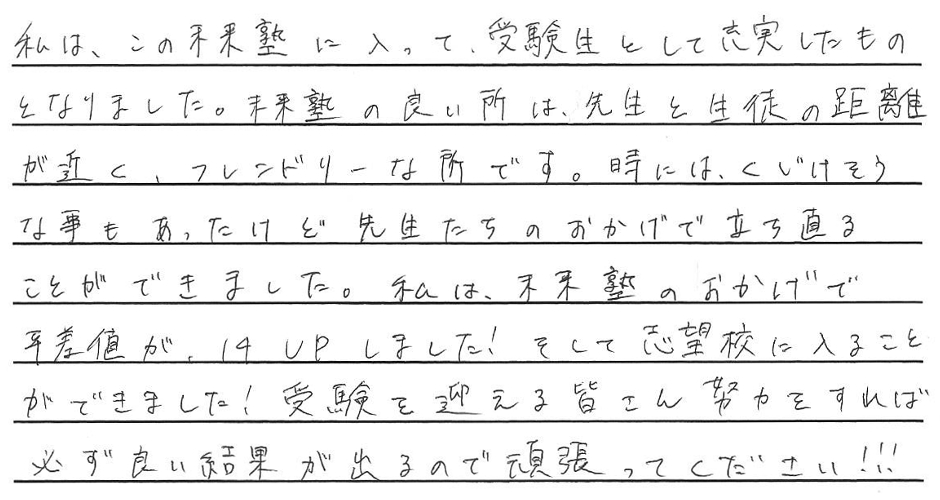 私は、この未来塾に入って、受験生として充実したもの
となりました。未来塾の良い所は、先生と生徒の距離
が近く、フレンドリーな所です。時には、くじけそう
な事もあったけど先生たちのおかげで立ち直る
ことができました。私は、未来塾のおかげで
平差値が、14UPしました!そして志望校に入ること
ができました!受験を迎える皆さん努力をすれば
必ず良い結果が出るので頑張ってください!!!